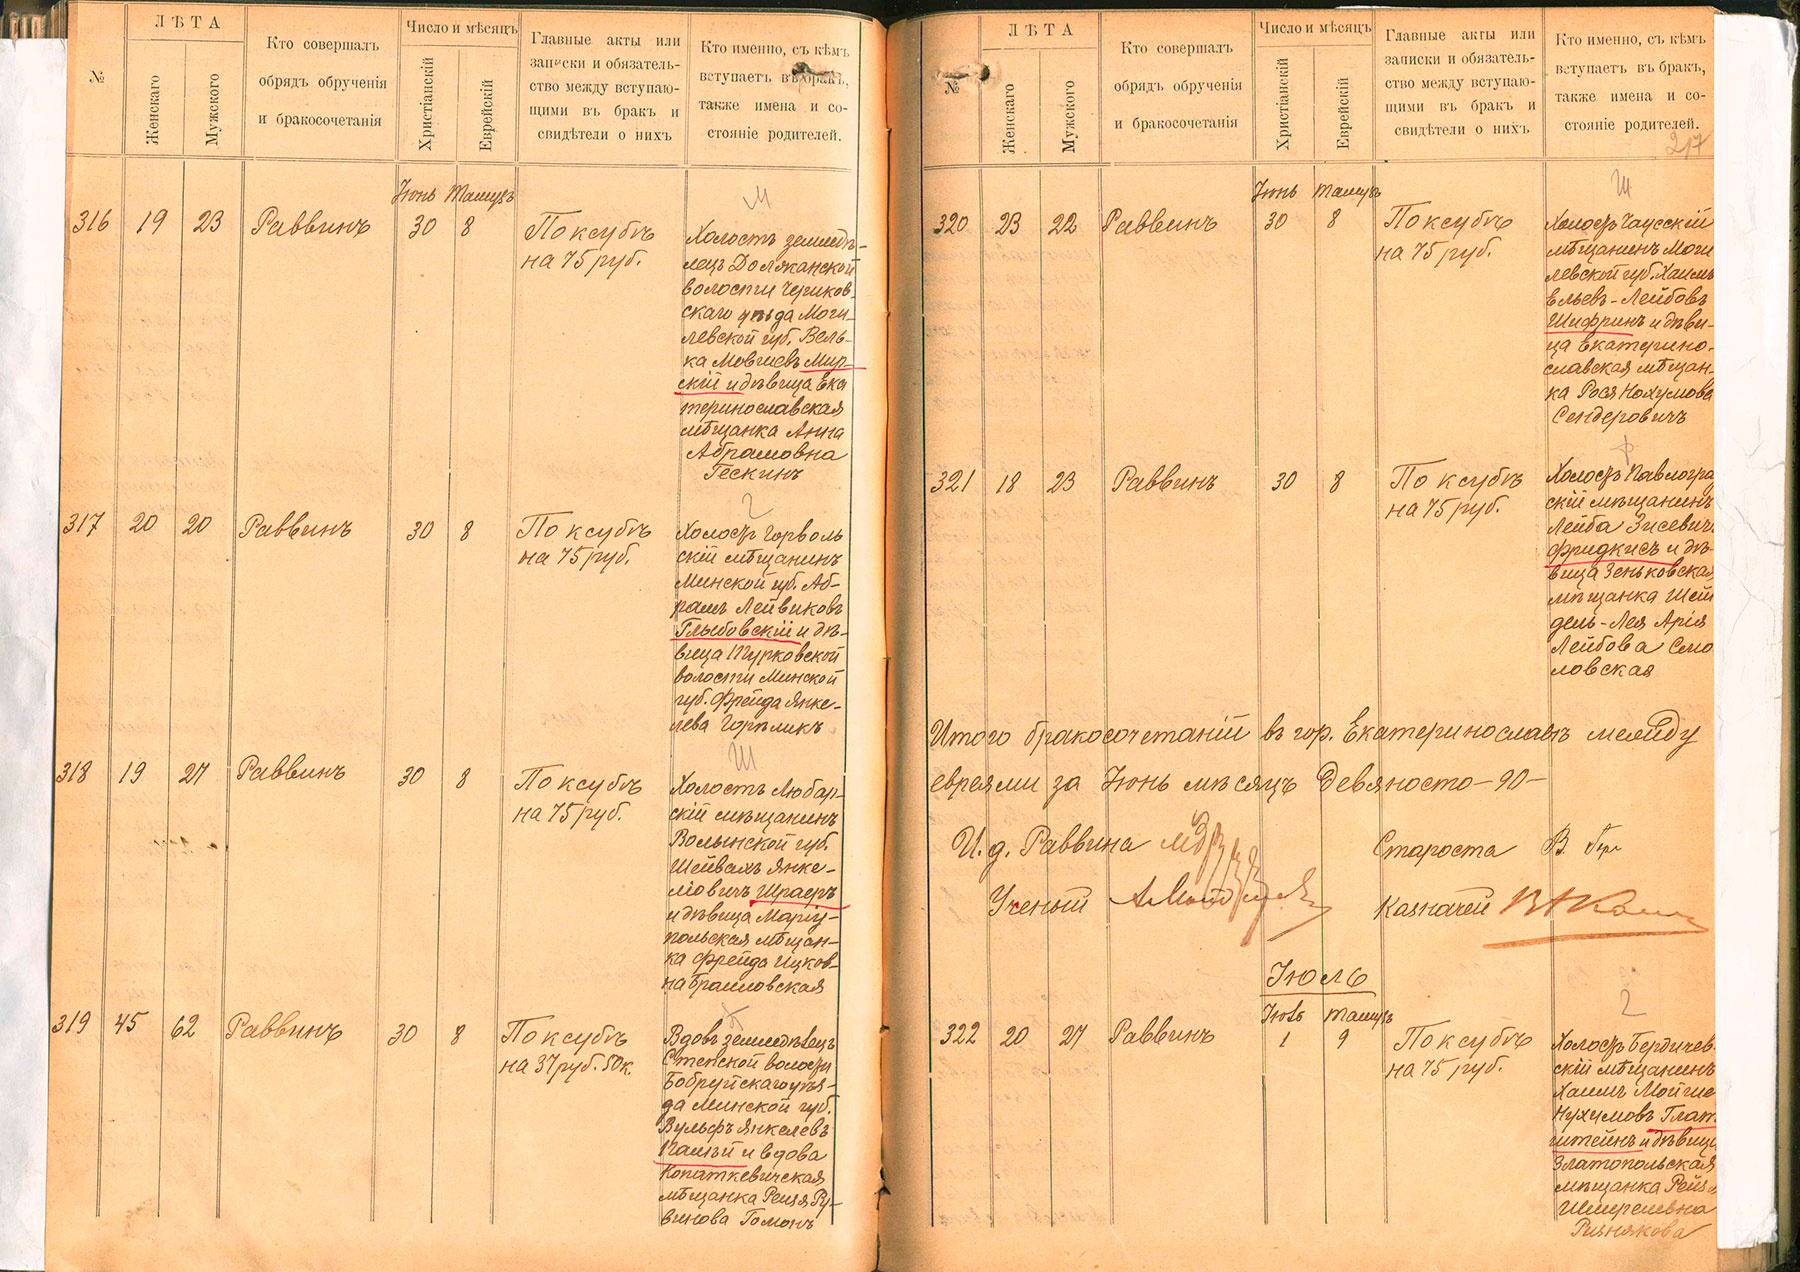 №
ЛѢТА
Женскаго
Мужского
Кто совершалъ
обрядъ обрученія
и бракосочетанія
Число и мѣсяцъ
Христіанскій
Еврейскій
Главные акты или
записки и обязатель-
ство между вступаю-
щими въ бракъ и
свидѣтели о нихъ
Кто именно, съ кѣмъ
вступаетъ въ бракъ,
также имена и со-
стояніе родителей.
Іюнь Тамузъ
316 19 23 Раввинъ 30 8 По ксубѣ
на 75 руб.
Холостъ земледѣ-
лецъ Должанской
волости Чериков
скаго уѣзда Моги-
левской губ. Вель-
ка Мовшевъ Мир-
скій и дѣвица Ека
теринославская
мѣщанка Анна
Абрамовна
Гескинъ
317 20 20 Раввинъ 30 8 По ксубѣ
на 75 руб.
Холостъ Горволь
скій мѣщанинъ
Минской губ. Аб-
рамъ Лейвиковъ
Глыбовскій и дѣ-
вица Турковской
волости Минской
губ. Фрейда Янке-
лева Горѣликъ
318 19 27 Раввинъ 30 8 По ксубѣ
на 75 руб.
Холостъ Любар-
скій мѣщанинъ
Волынской губ.
Шейвахъ Янке-
ліовичъ Шраеръ
и дѣвица Маріу-
польская мѣщан-
ка Фрейда Ицков-
на Браиловская
319 45 62 Раввинъ 30 8 По ксубѣ
на 37 руб. 50 к.
Вдовъ земледѣлецъ
волости
Бобруйскаго уѣз-
да Минской губ.
Вульфъ Янкелевъ
и вдова
Копаткевичская
мѣщанка Решя Ру-
винова Гомонъ
№
ЛѢТА
Женскаго
Мужского
Кто совершалъ
обрядъ обрученія
и бракосочетанія
Число и мѣсяцъ
Христіанскій
Еврейскій
Главные акты или
записки и обязатель-
ство между вступаю-
щими въ бракъ и
свидѣтели о нихъ
Кто именно, съ кѣмъ
вступаетъ въ бракъ,
также имена и со-
стояніе родителей.
217
Іюнь Тамузъ
320 23 22 Раввинъ 30 8 По ксубѣ
на 75 руб.
Холостъ Чаусскій
мѣщанинъ Моги
левской губ. Хаимъ
Ельевъ-Лейбовъ
Шифринъ и дѣви-
ца Екатерино-
славская мѣщан-
ка Рося Нохумова
Сендеровичъ
321 18 23 Раввинъ 30 8 По ксубѣ
на 75 руб.
Холостъ Павлогра
скій мѣщанинъ
Лейба Зисевичъ
Фридкисъ и дѣ-
вица Зеньковская
мѣщанка Шей
дель-Лея Арія
Лейбова Смо
ловская
Итого бракосочетаній въ гор. Екатеринославѣ между
евреями за Іюнь мѣсяцъ девяносто-90-
И. д. Раввина
Староста В.
Ученый
Казначей
Іюль
Іюль Тамузъ
322 20 27 Раввинъ 1 9 По ксубѣ
на 75 руб.
Холостъ Бердичев-
скій мѣщанинъ
Хаимъ Мойше
Нухимовъ Глат
штейнъ и дѣвица
Златопольская
мѣщанка Рейзя